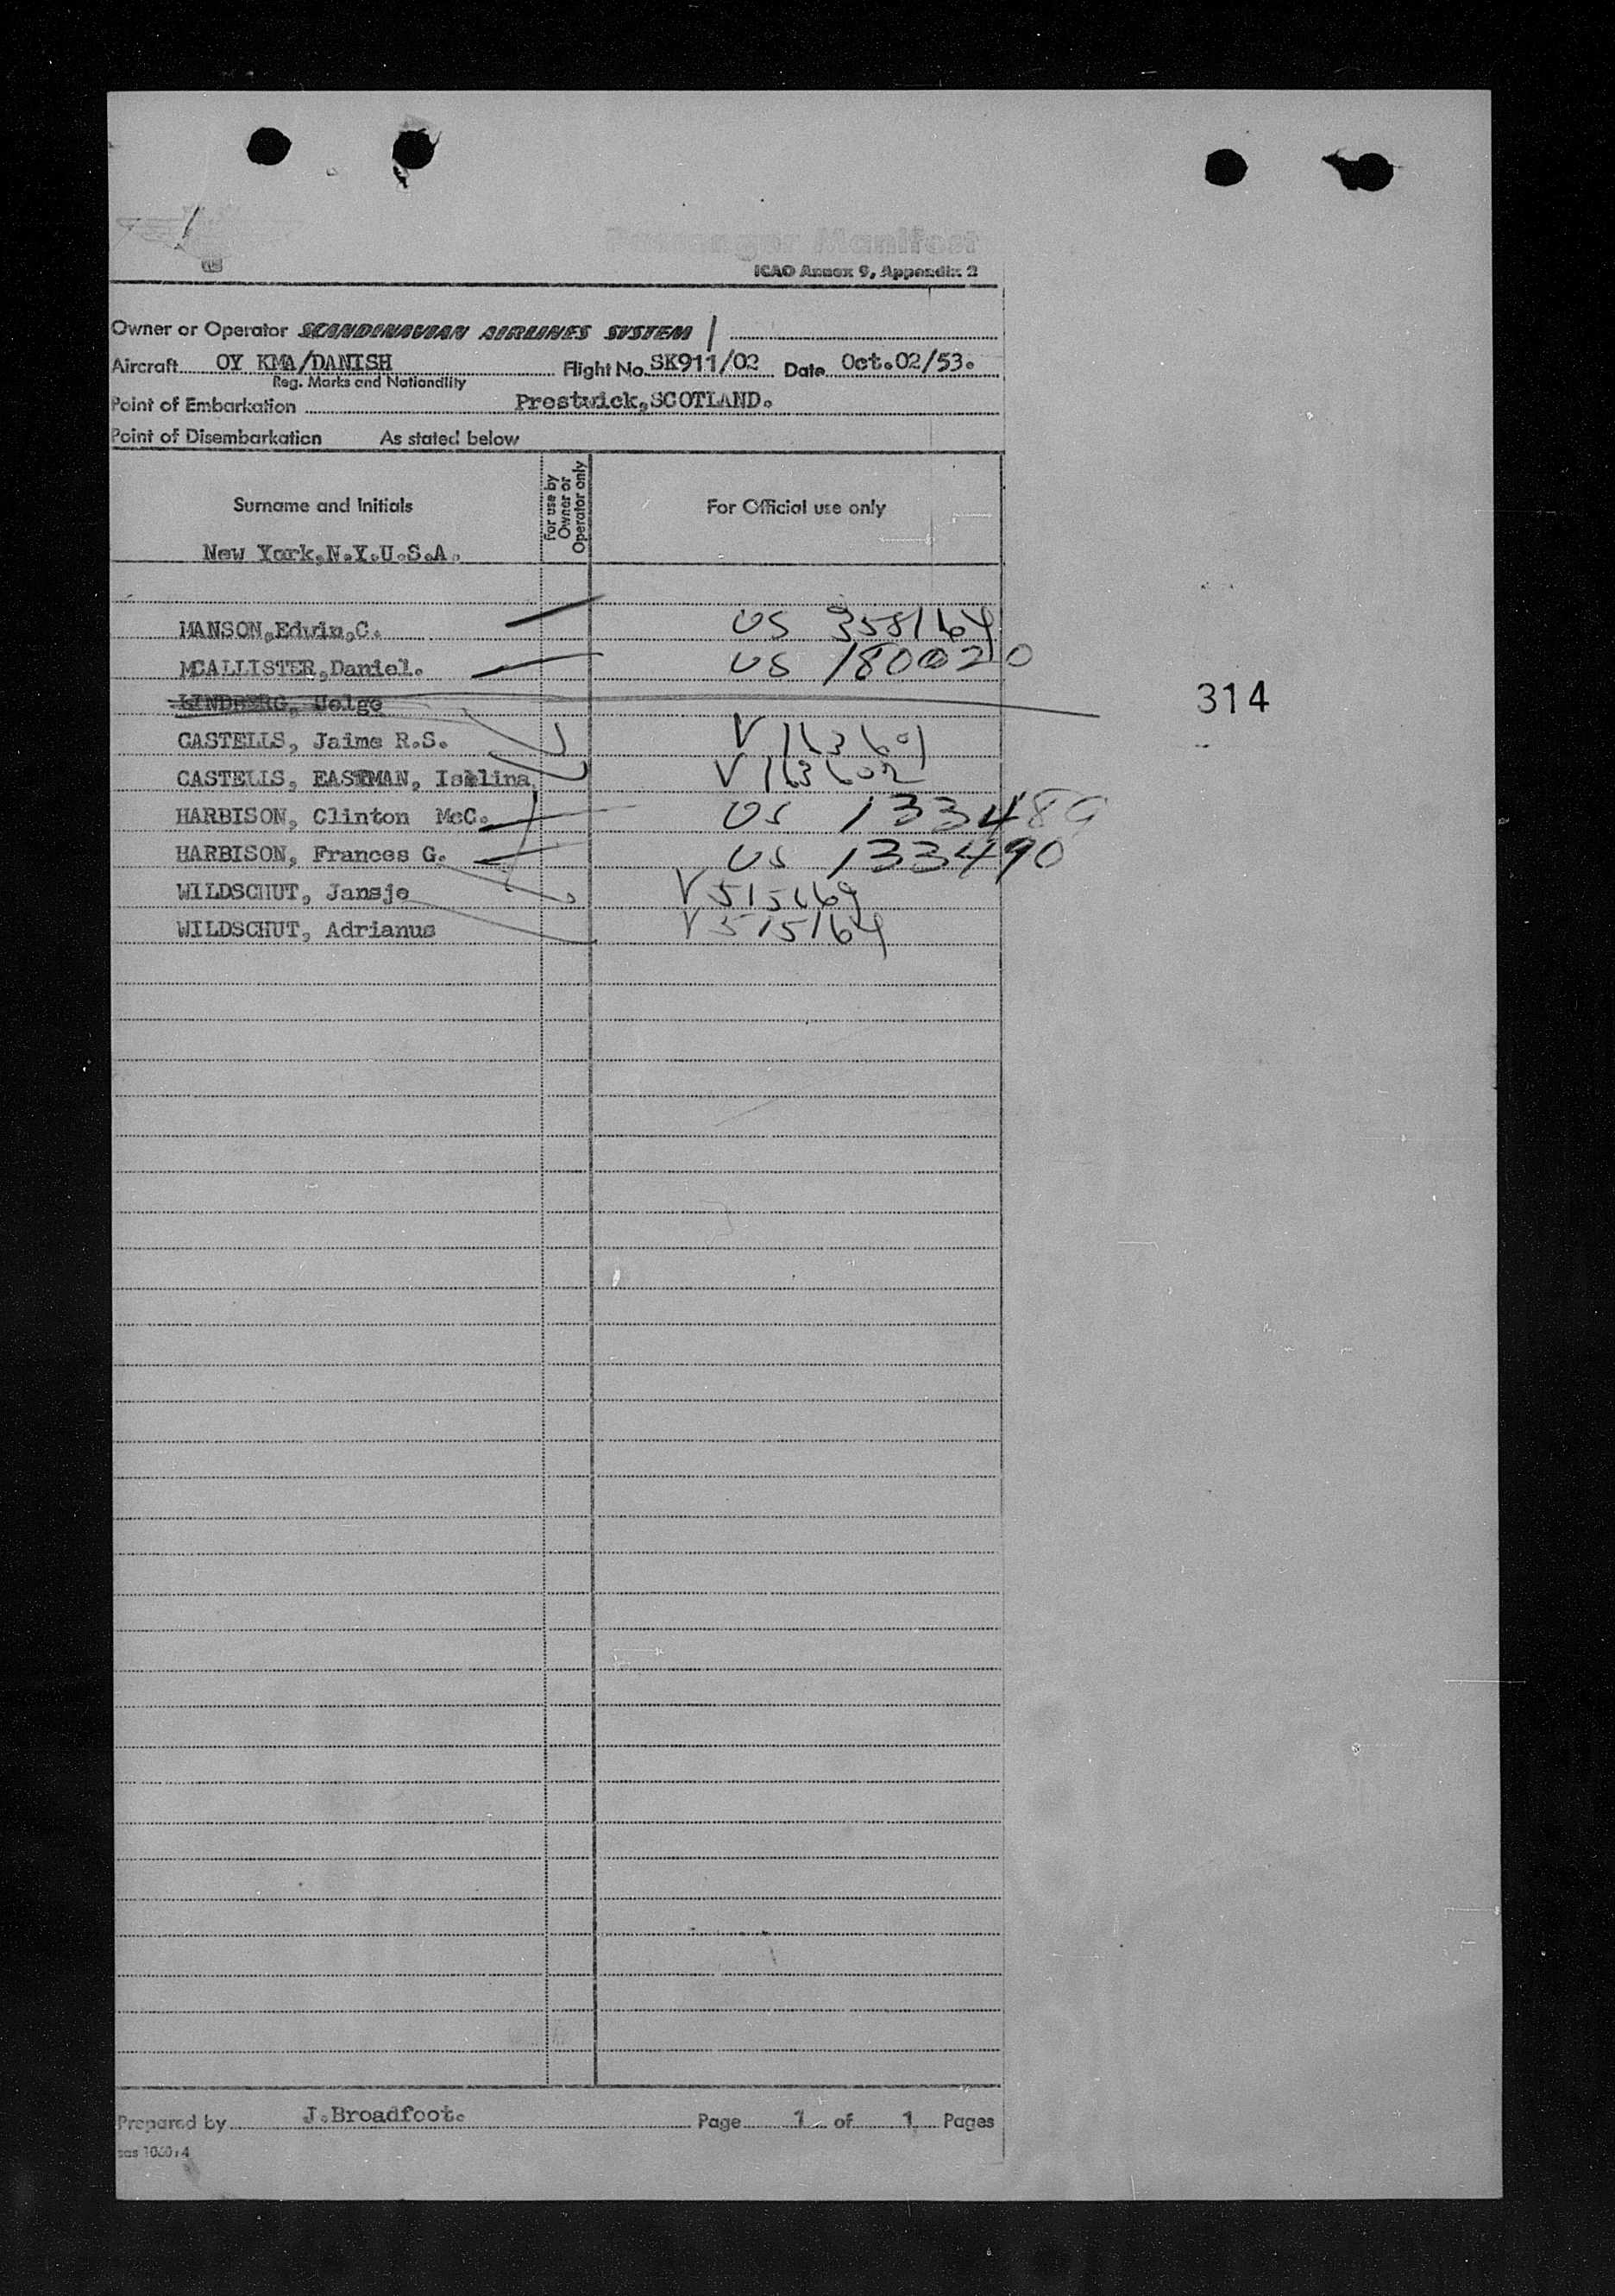 Passenger Manifest
ICAO Annex 9, Appendix 2
Owner or Operator SCANDINAVIAN AIRLINES SYSTEM
Aircraft OY KMA/DANISH Flight No. SK911/02 Date Oct.02/53.
Reg. Marks and Nationality
Point of Embarkation Prestwick,SCOTLAND.
Point of Disembarkation As stated below
Surname and Initials
For use by Owner or Operator only
For Official use only
New York,N.Y.U.S.A.
MANSON,Edwin,C. US 358164
MCALLISTER,Daniel. US 180020
LINDBERG, Helge
314
CASTELLS, Jaime R.S. V 163601
CASTELLS, EASTMAN, Iselina V 163602
HARBISON, Clinton McC. US 133489
HARBISON, Frances G. US 133490
WILDSCHUT, Jansje V 515169
WILDSCHUT, Adrianus V 515164
Prepared by J.Broadfoot. Page 1 of 1 Pages